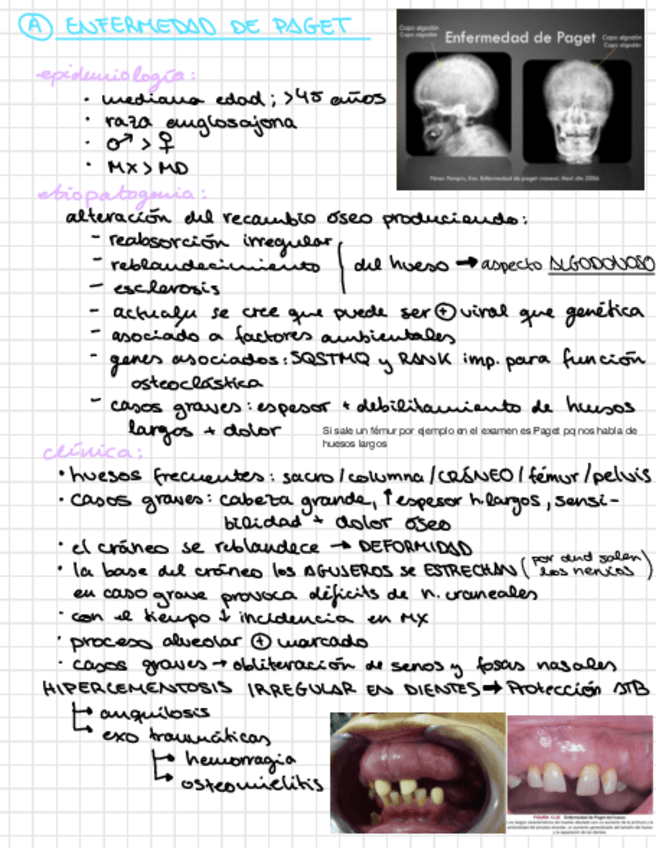 A ENFERMEDAD DE PAGET
Copo algodón
Copo algodón
Enfermedad de Paget
Copo algodón
Copo algodón
Pérez Pampín, Eva. Enfermedad de paget craneal. Med clín 2006
epidemiología:
· mediana edad; >45 años
· raza anglosajona
· ♂ > ♀
· MX > MD
etiopatogenia:
alteración del recambio óseo produciendo:
- reabsorción irregular
- reblandecimiento
- esclerosis
del hueso → aspecto ALGODONOSO
- actualm se cree que puede ser ⊕ viral que genética
- asociado a factores ambientales
- genes asociados: SQSTM1 y RANK imp. para función
osteoclástica
- casos graves: espesor + debilitamiento de huesos
largos + dolor
Si sale un fémur por ejemplo en el examen es Paget pq nos habla de
huesos largos
clínica:
· huesos frecuentes: sacro/columna/CRÁNEO/fémur/pelvis
· casos graves: cabeza grande, ↑espesor h.largos, sensi-
bilidad + dolor óseo
· el cráneo se reblandece → DEFORMIDAD
· la base del cráneo los AGUJEROS se ESTRECHAN (por dnd salen
los nervios)
en caso grave provoca déficits de n. craneales
· con el tiempo ↓ incidencia en MX
· proceso alveolar ⊕ marcado
· casos graves → obliteración de senos y fosas nasales
HIPERCEMENTOSIS IRREGULAR EN DIENTES → Protección ATB
↳ anquilosis
↳ exo traumáticas
↳ hemorragia
↳ osteomielitis
Enfermedad de Paget del hueso.